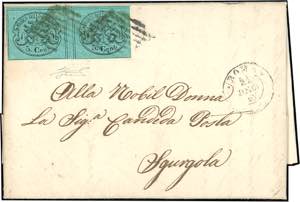 5 Cent. 5 Cent.
ROMA
DEC
Alla Nobil Donna
La Sig.ª Candida Posta
Sgurgola